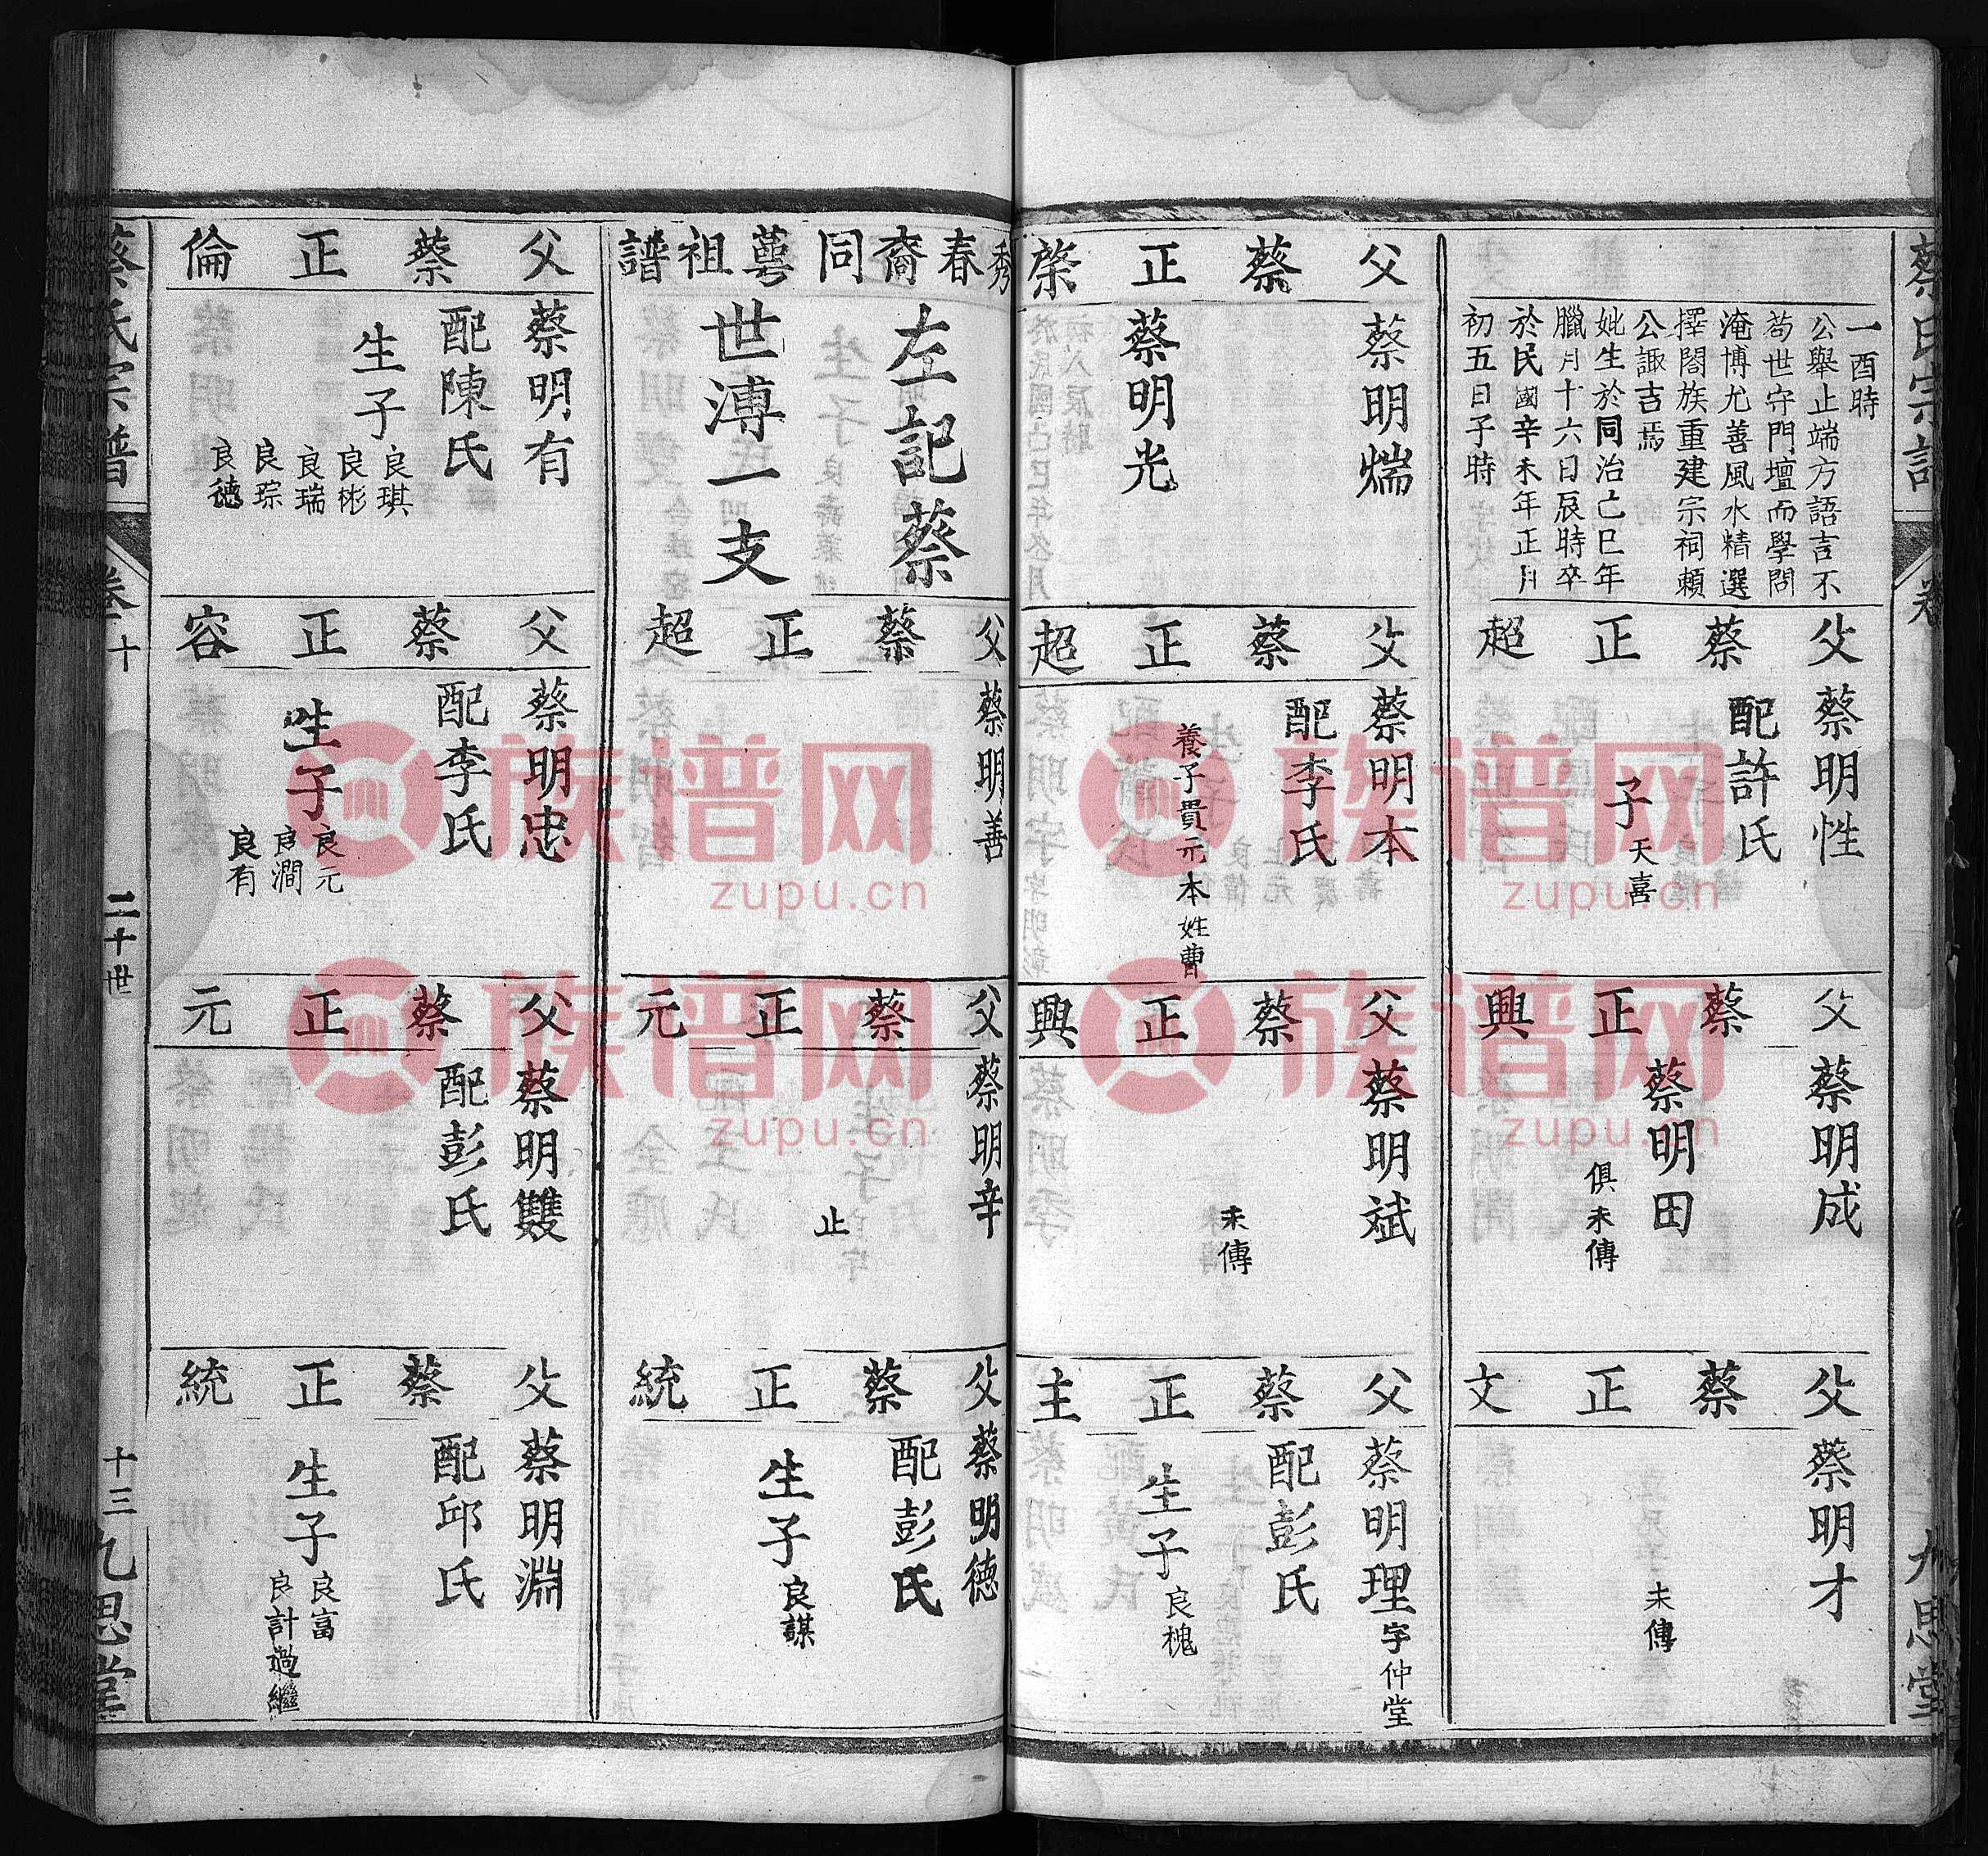 蔡氏宗譜
卷
九思堂
一酉時
公舉止端方語言不
苟世守門壇而學問
淹博尤善風水精選
擇閤族重建宗祠賴
公諏吉焉
妣生於同治己巳年
臘月十六日辰時卒
於民國辛未年正月
初五日子時
父蔡正超
蔡明性
配許氏
子
天喜
父蔡正興
蔡明成
蔡明田
俱未傳
父蔡正文
蔡明才
未傳
父蔡正榮
蔡明煓
蔡明光
父蔡正超
蔡明本
配李氏
養子貫元本姓曹
父蔡正興
蔡明斌
未傳
父蔡正主
蔡明理字仲堂
配彭氏
生子
良槐
秀春裔同蕚祖譜
左記蔡
世溥一支
父蔡正超
蔡明善
父蔡正元
蔡明辛
止
父蔡正統
蔡明德
配彭氏
生子
良謀
父蔡正倫
蔡明有
配陳氏
生子
良琪
良彬
良瑞
良琮
良德
父蔡正容
蔡明忠
配李氏
生子
良元
良澗
良有
父蔡正元
蔡明雙
配彭氏
父蔡正統
蔡明淵
配邱氏
生子
良富
良計過繼
蔡氏宗譜
卷十
二十世
十三
九思堂
族谱网
zupu.cn
族谱网
zupu.cn
族谱网
zupu.cn
族谱网
zupu.cn